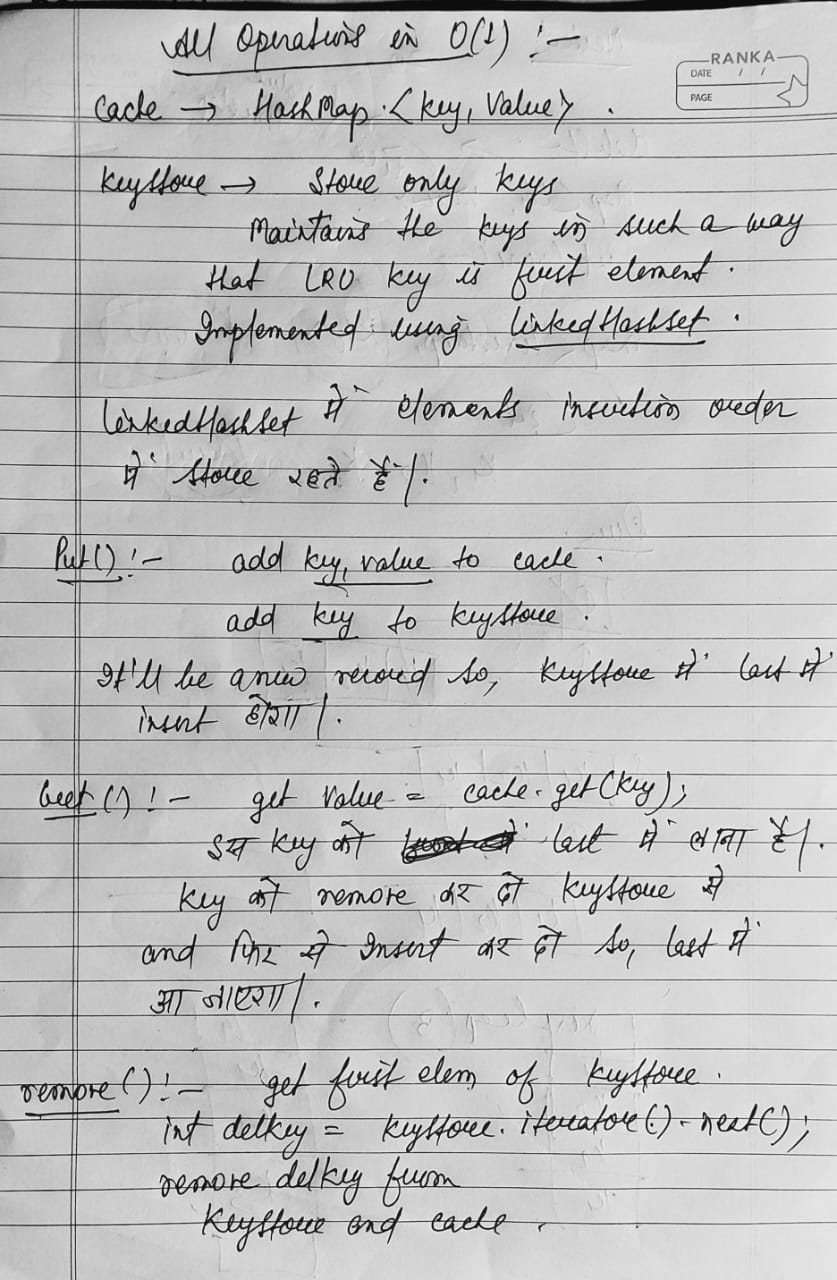 All Operations in O(1) :-
RANKA
DATE / /
PAGE
Cache → HashMap <key, Value> .
Keystore → Store only keys
Maintains the keys in such a way
that LRU key is first element .
Implemented using linkedHashset .
linkedHashSet में elements insertion order
में store रहते हैं।.
Put() :- add key, value to cache .
add key to keystore .
It'll be a new record so, keystore में last में
insert होगा।.
Get () :- get value = cache.get(key);
इस key को last में लाना है।.
key को remove कर दो keystore से
and फिर से Insert कर दो so, last में
आ जाएगा।.
remove() :- get first elem of keystore .
int delkey = keystore.iterator().next();
remove delkey from
Keystore and cache .